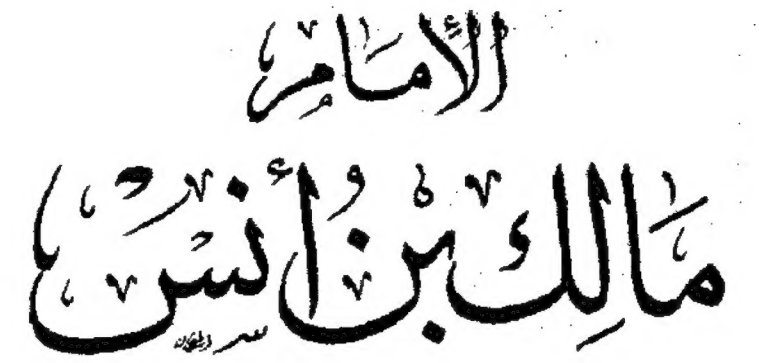 الإمام
مالك بن أنس